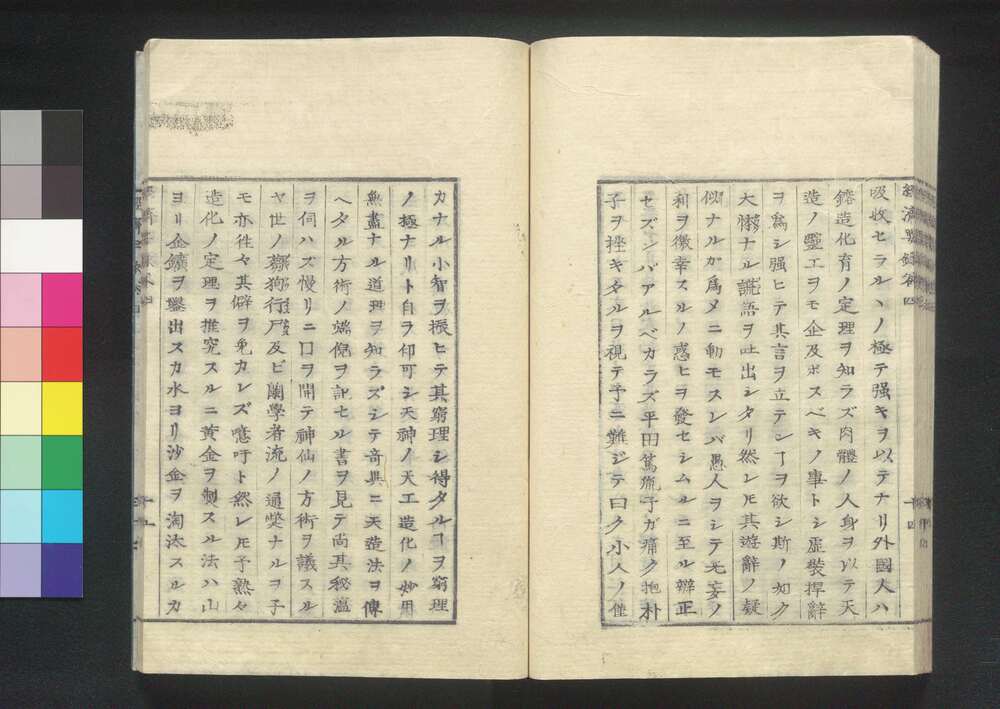 吸收セラルヽノ極テ强キヲ以テナリ外國人ハ
鎔造化育ノ定理ヲ知ラズ肉體ノ人身ヲ以テ天
造ノ靈工ヲモ企及ボスベキノ事トシ虛裝捍辭
ヲ爲シ强ヒテ其言ヲ立テンヿヲ欲シ斯ノ如ク
大ナル謊語ヲ吐出シタリ然レ𪜈其遊辭ノ疑
似ナルガ爲メニ動モスレバ愚人ヲシテ无妄ノ
利ヲ徼幸スルノ惑ヒヲ發セシムルニ至ル辯正
セズンバアルベカラズ平田篤胤子ガ痛ク抱朴
子ヲ挫キタルヲ視テ予ニ難ジテ曰ク小人ノ僅
カナル小智ヲ振ヒテ其窮理シ得タルヿヲ窮理
ノ極ナリト自ラ印可シ天神ノ天工造化ノ妙用
無盡ナル道理ヲ知ラズシテ奇異ニ天造法ヲ傳
ヘタル方術ノ端倪ヲ記セル書ヲ見テ尚其秘蘊
ヲ伺ハズ慢リニ口ヲ開テ神仙ノ方術ヲ議スル
ヤ世ノ芻狗行尸及ビ蘭學者流ノ通獘ナルヲ子
モ亦往々其僻ヲ免カレズ噫吁ト然レ𪜈予熟々
造化ノ定理ヲ推究スルニ黃金ヲ製スル法ハ山
ヨリ金鑛ヲ鑿出スカ水ヨリ沙金ヲ淘汰スルカ